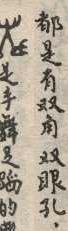 都是有双角双眼孔，
是手舞足蹈的